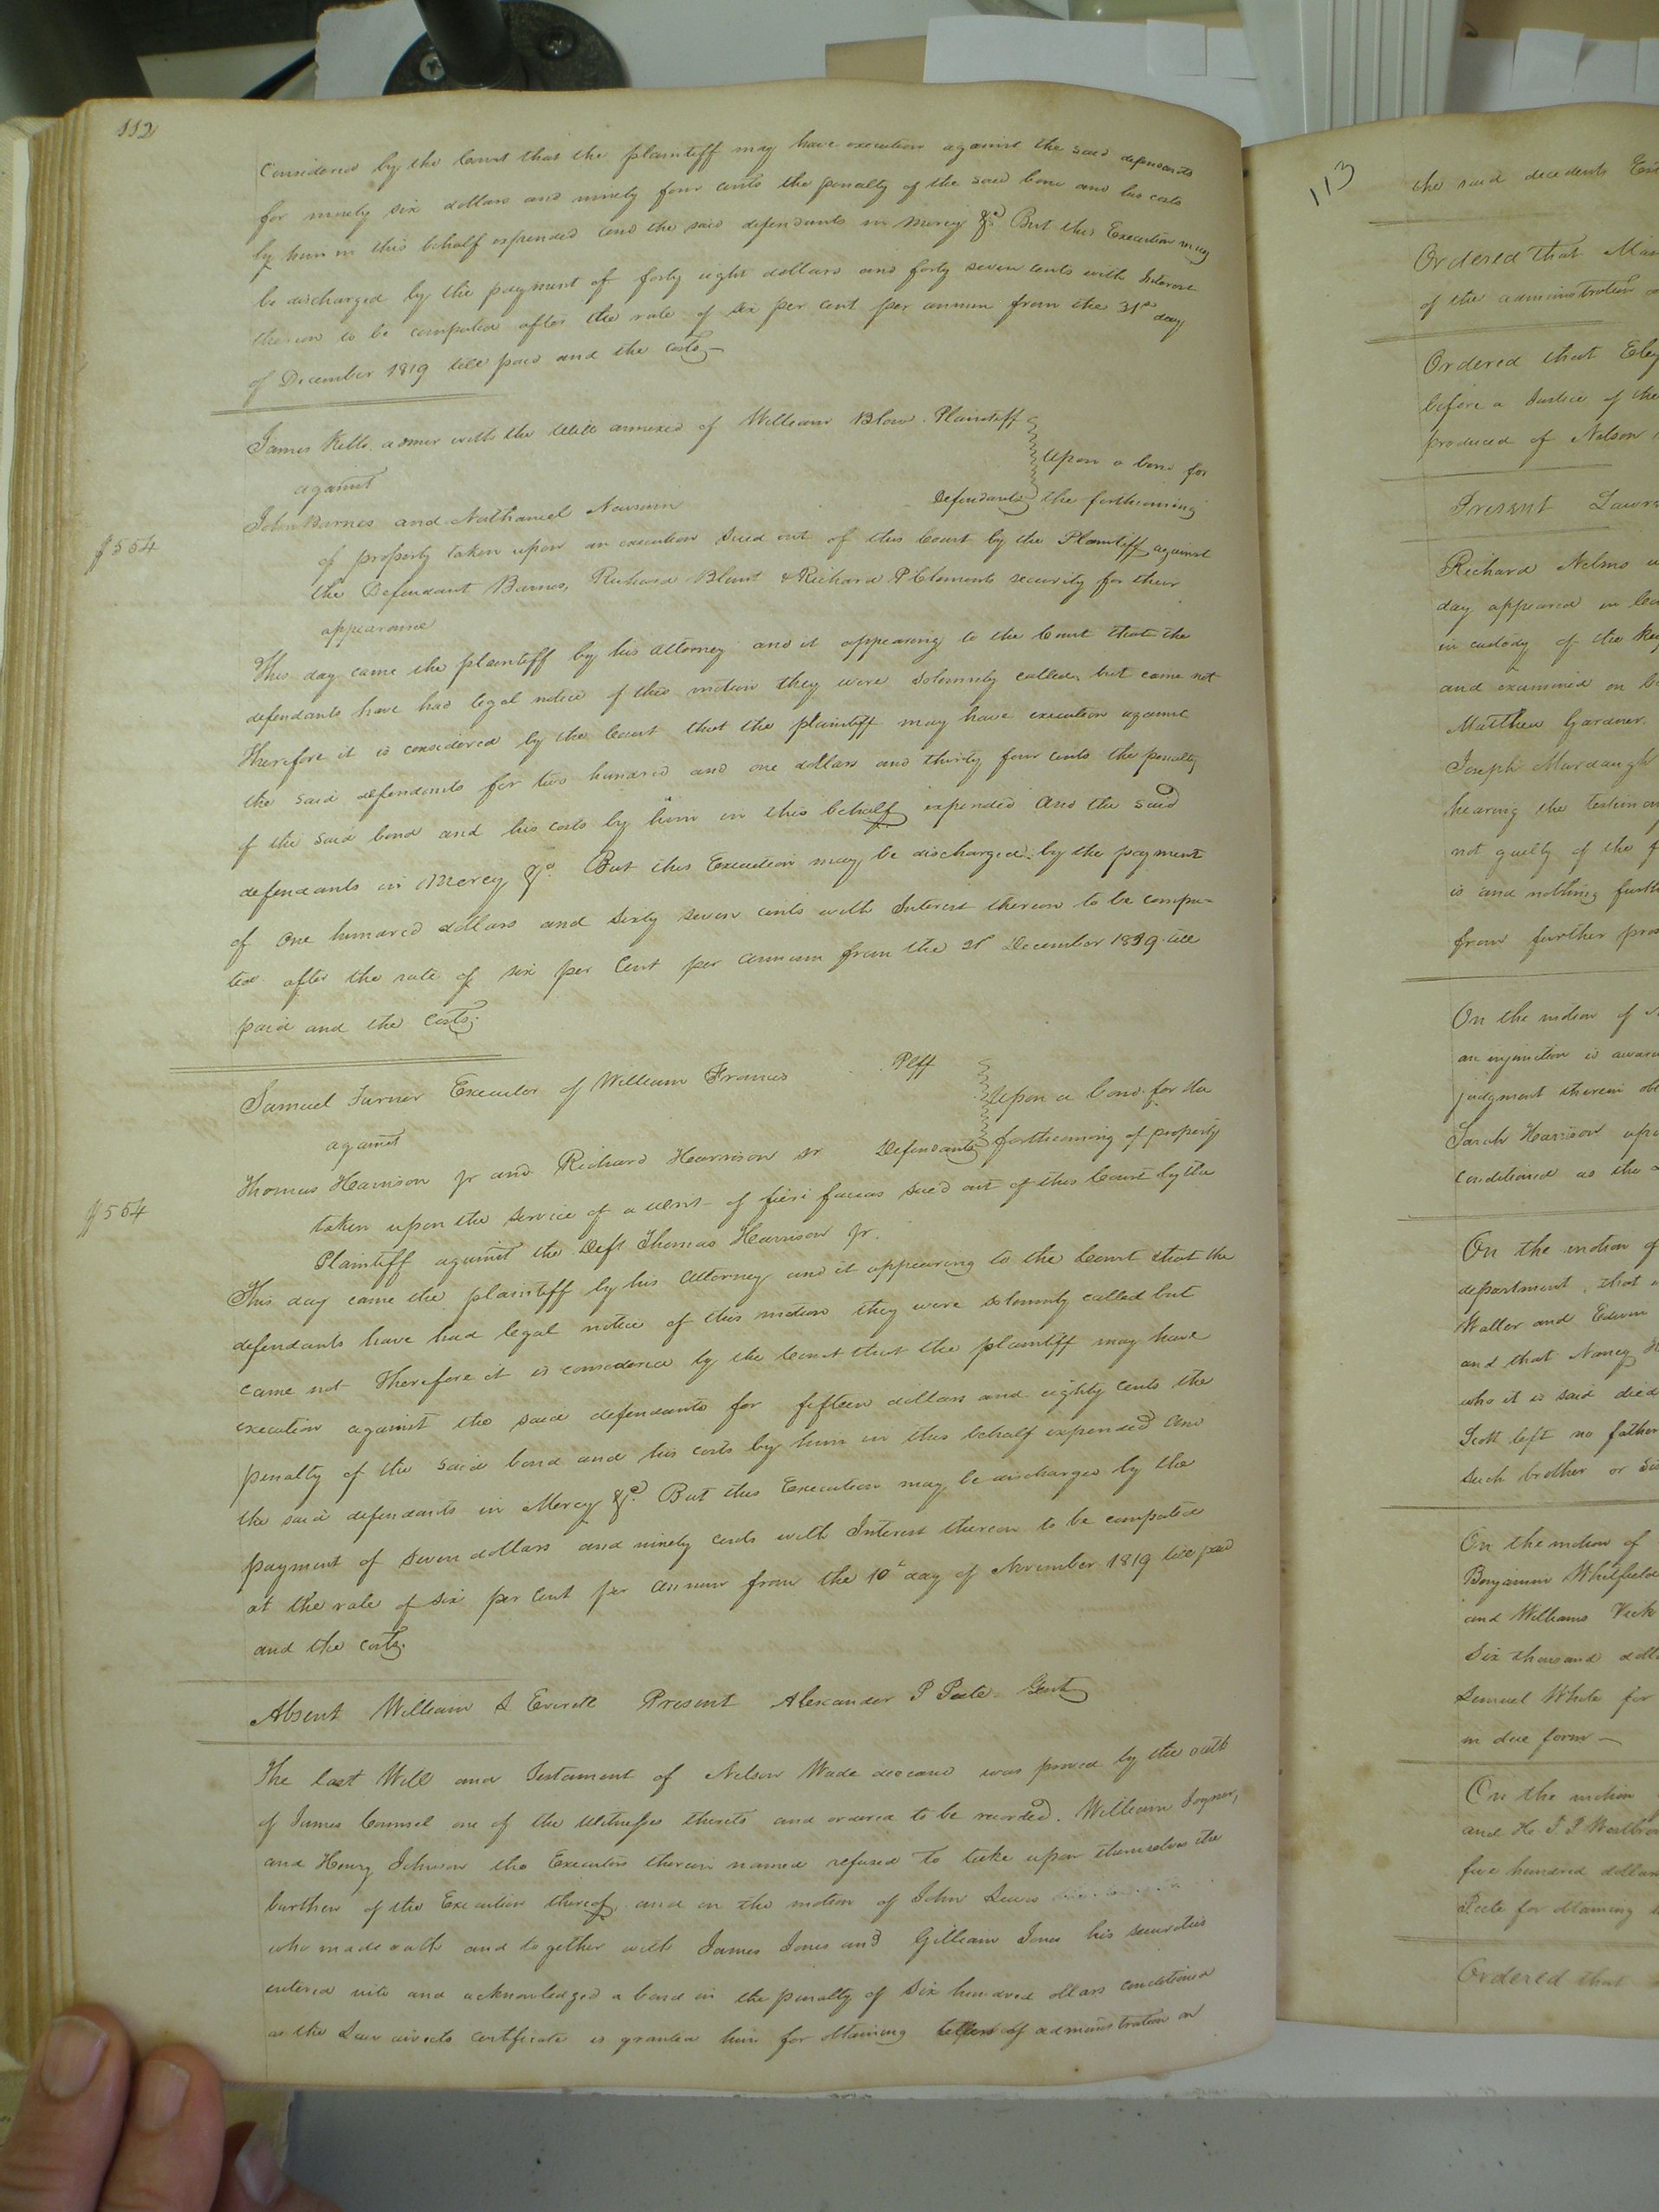 112
Considered by the Court that the plaintiff may have execution against the said defendants
for ninety six dollars and ninety four cents the penalty of the said bond and his costs
by him in this behalf expended and the said defendants in Mercy &c. But this Execution may
be discharged by the payment of forty eight dollars and forty seven cents with Interest
thereon to be computed after the rate of six per cent per annum from the 31st day
of December 1819 till paid and the costs
James Kello admr with the Will annexed of William Blow Plaintiff
against
Upon a bond for
John Barnes and Nathaniel Newsum Defendants the forthcoming
$554
of property taken upon an execution sued out of this Court by the Plaintiff against
the Defendant Barnes, Richard Blunt & Richard P Clements security for their
appearance
This day came the plaintiff by his attorney and it appearing to the Court that the
defendants have had legal notice of this motion they were solemnly called, but came not
Therefore it is considered by the Court that the plaintiff may have execution against
the said defendants for two hundred and one dollars and thirty four cents the penalty
of the said bond and his costs by him in this behalf expended And the said
defendants in Mercy &c. But this Execution may be discharged by the payment
of One hundred dollars and Sixty seven cents with Interest thereon to be compu-
ted after the rate of six per Cent per annum from the December 1819 till
paid and the Costs.
Samuel Turner Executor of William Francis Plff
against
Upon a bond for the
Thomas Harrison Jr and Richard Harrison Sr Defendants forthcoming of property
$554
taken upon the service of a writ of fieri facias sued out of this Court by the
Plaintiff against the Deft Thomas Harrison Jr.
This day came the plaintiff by his Attorney and it appearing to the Court that the
defendants have had legal notice of this motion they were solemnly called but
came not Therefore it is considered by the Court that the plaintiff may have
execution against the said defendants for fifteen dollars and eighty cents the
penalty of the said bond and his costs by him in this behalf expended And
the said defendants in Mercy &c. But this Execution may be discharged by the
payment of seven dollars and ninety cents with Interest thereon to be computed
at the rate of six per Cent per annum from the 10th day of November 1819 till paid
and the costs.
Absent William Everett Present Alexander P Peete Gent
The last Will and Testament of Nelson Wade deceased was proved by the oath
of James Counsel one of the Witnesses thereto and ordered to be recorded. William Joyner,
and Henry Johnson the Executors therein named refused to take upon themselves the
burthen of the Execution thereof, and on the motion of John
who made oath and together with James Jones and Gilliam Jones his securities
entered into and acknowledged a bond in the penalty of Six hundred dollars conditioned
as the Law directs certificate is granted him for obtaining letters of administration on
113
the said decedents
Ordered that
of the administration
Ordered that
before a Justice of the
produced of Nelson
Present
Richard Nelms
day appeared in
in custody of the
and examined on
Matthew Gardner
Joseph Murdaugh
hearing the
not guilty of the
is and nothing
from further
On the motion of
an injunction is
judgment therein
Sarah Harrison
Conditioned as the
On the motion of
department, that
Waller and Edwin
and that Nancy
who it is said died
Scott left no father
such brother or
On the motion of
Benjamin Whitfield
and Williams Vick
Six thousand
Lemuel White for
in due form
On the motion
and
five hundred dollars
Peete for obtaining
Ordered that